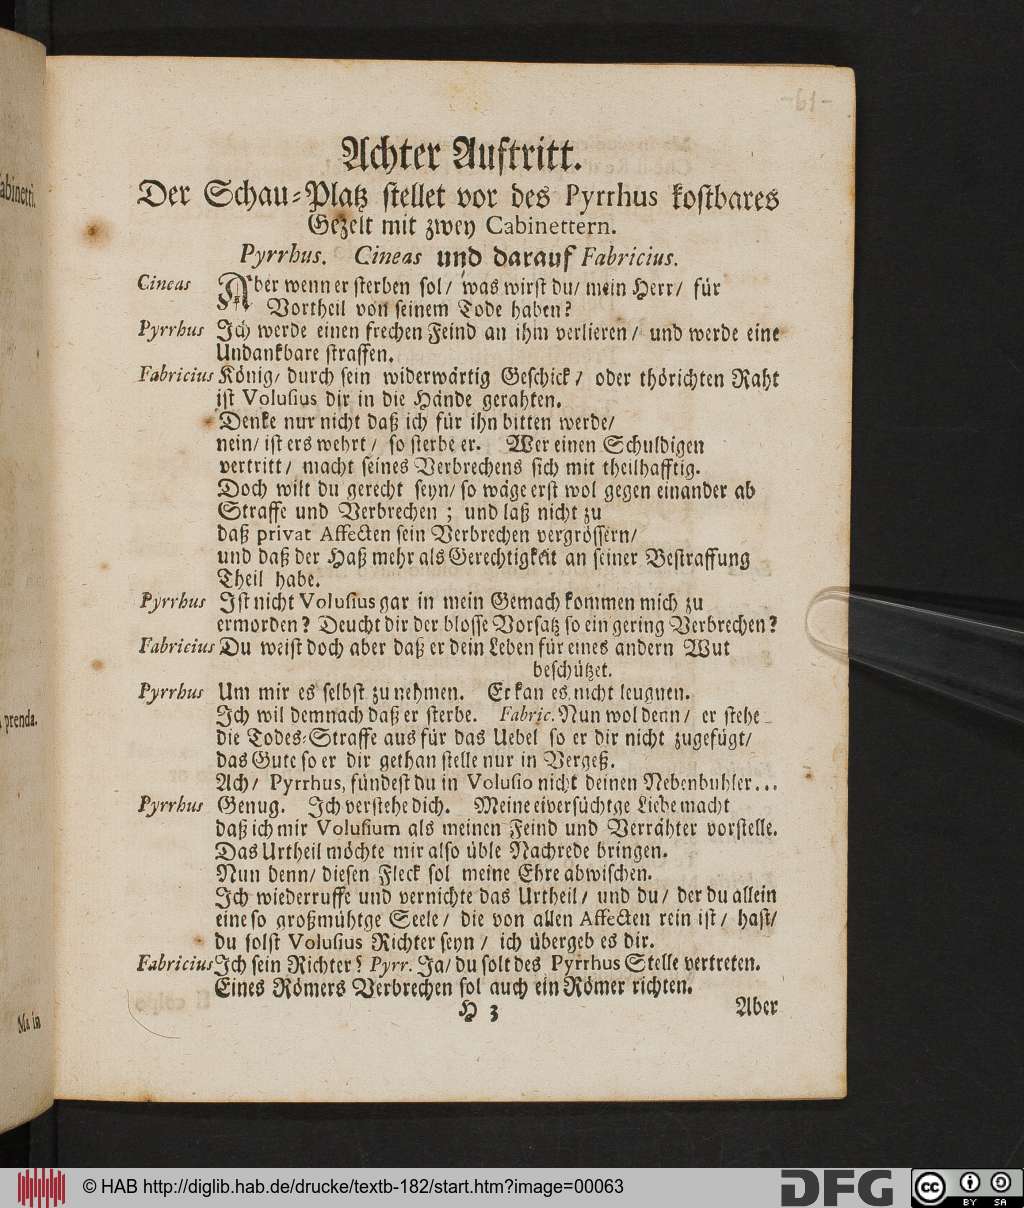 -61-
Achter Auftritt.
Der Schau-Platz stellet vor des Pyrrhus kostbares
Gezelt mit zwey Cabinettern.
Pyrrhus. Cineas und darauf Fabricius.
Cineas Aber wenn er sterben sol/ was wirst du/ mein Herr/ für
Vortheil von seinem Tode haben?
Pyrrhus Ich werde einen frechen Feind an ihm verlieren/ und werde eine
Undankbare straffen.
Fabricius König/ durch sein widerwärtig Geschick/ oder thörichten Raht
ist Volusius dir in die Hände gerahten.
Denke nur nicht daß ich für ihn bitten werde/
nein/ ist ers wehrt/ so sterbe er. Wer einen Schuldigen
vertritt/ macht seines Verbrechens sich mit theilhafftig.
Doch wilt du gerecht seyn/ so wäge erst wol gegen einander ab
Straffe und Verbrechen; und laß nicht zu
daß privat Affecten sein Verbrechen vergrössern/
und daß der Haß mehr als Gerechtigkeit an seiner Bestraffung
Theil habe.
Pyrrhus Ist nicht Volusius gar in mein Gemach kommen mich zu
ermorden? Deucht dir der blosse Vorsatz so ein gering Verbrechen?
Fabricius Du weist doch aber daß er dein Leben für eines andern Wut
beschützet.
Pyrrhus Um mir es selbst zu nehmen. Er kan es nicht leugnen.
Ich wil demnach daß er sterbe. Fabric. Nun wol denn/ er stehe
die Todes-Straffe aus für das Uebel so er dir nicht zugefügt/
das Gute so er dir gethan stelle nur in Vergeß.
Ach/ Pyrrhus, fündest du in Volusio nicht deinen Nebenbuhler...
Pyrrhus Genug. Ich verstehe dich. Meine eiversüchtge Liebe macht
daß ich mir Volusium als meinen Feind und Verrähter vorstelle.
Das Urtheil möchte mir also üble Nachrede bringen.
Nun denn/ diesen Fleck sol meine Ehre abwischen.
Ich wiederruffe und vernichte das Urtheil/ und du/ der du allein
eine so großmühtge Seele/ die von allen Affecten rein ist/ hast/
du solst Volusius Richter seyn/ ich übergeb es dir.
Fabricius Ich sein Richter? Pyrr. Ja/ du solt des Pyrrhus Stelle vertreten.
Eines Römers Verbrechen sol auch ein Römer richten.
H 3 Aber
prenda.
Ma in
© HAB http://diglib.hab.de/drucke/textb-182/start.htm?image=00063
DFG
cc BY SA